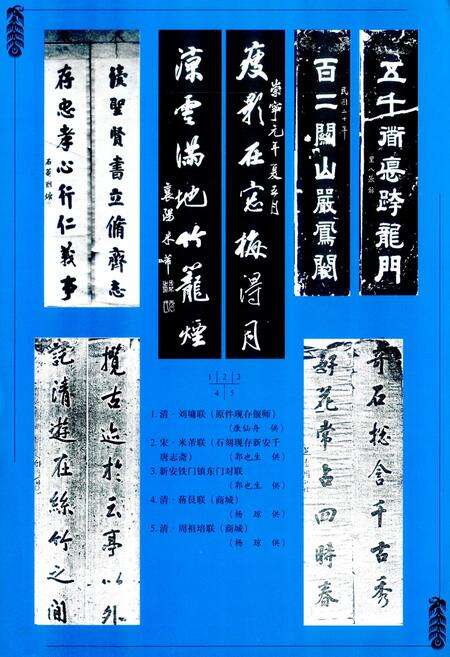 讀聖賢書立脩齊志
存忠孝心行仁義事
石菴劉墉
崇寧元年夏五月
瘦影在窓梅得月
涼雲滿地竹籠煙
襄陽米芾
五千道悳跨龍門
百二關山嚴鳳闕
民國二十年
攬古迹於云亭以外
記清遊在絲竹之間
奇石捴含千古秀
好花常占四時春
1 2 3
4 5
1. 清·刘墉联（原件现存偃师）
（康仙舟 供）
2. 宋·米芾联（石刻现存新安千
唐志斋） （郭也生 供）
3. 新安铁门镇东门对联
（郭也生 供）
4. 清·蒋艮联（商城）
（杨 琼 供）
5. 清·周祖培联（商城）
（杨 琼 供）